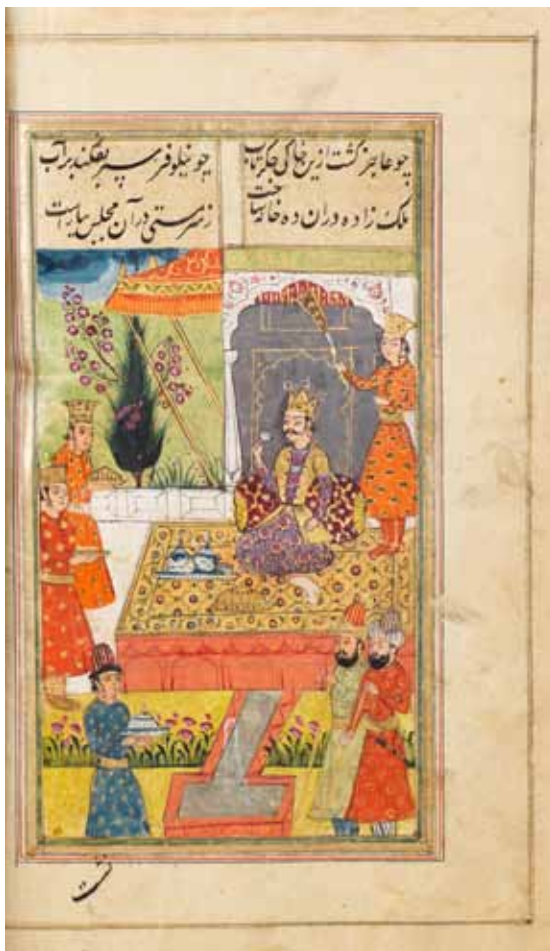 چو عاجز گشت ازین خاکی جگرتاب چو نیلوفر سپر بفکند بر آب
ملک زاده دران ده خانه ساخت ز سرمستی در آن مجلس بیاراست